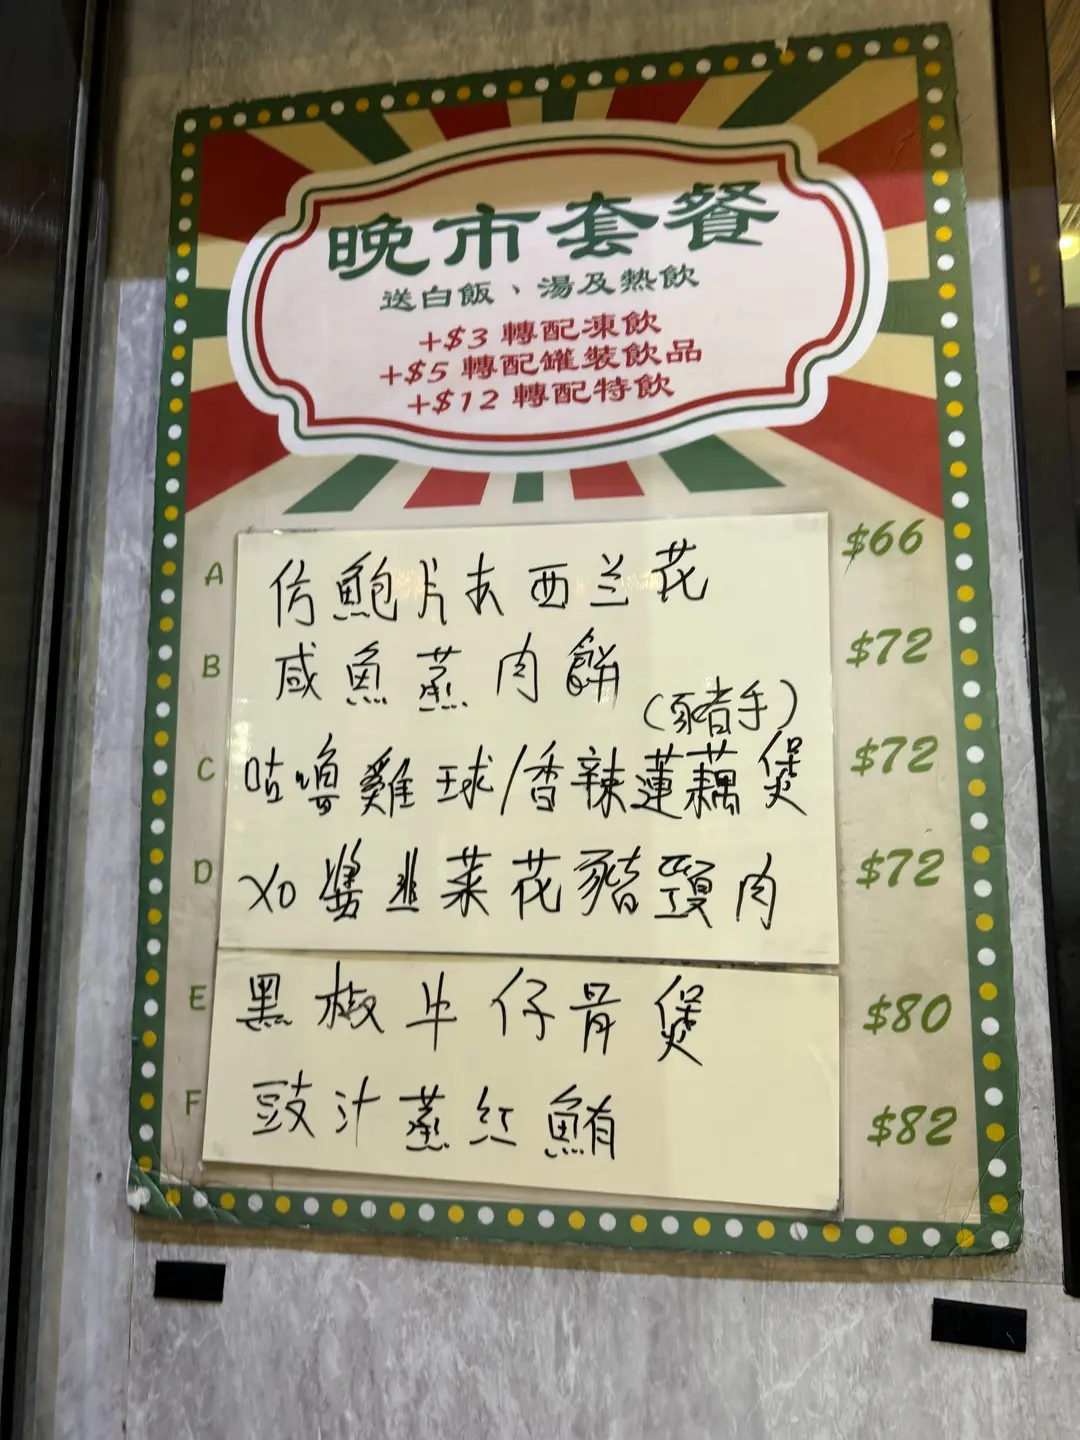 晚市套餐
送白飯、湯及熱飲
+$3 轉配凍飲
+$5 轉配罐裝飲品
+$12 轉配特飲
A 仿鮑片扒西兰花 $66
B 咸魚蒸肉餅 $72
(豬手)
C 咕嚕雞球/香辣蓮藕煲 $72
D XO醬韭菜花豬頸肉 $72
E 黑椒牛仔骨煲 $80
F 豉汁蒸紅鮪 $82